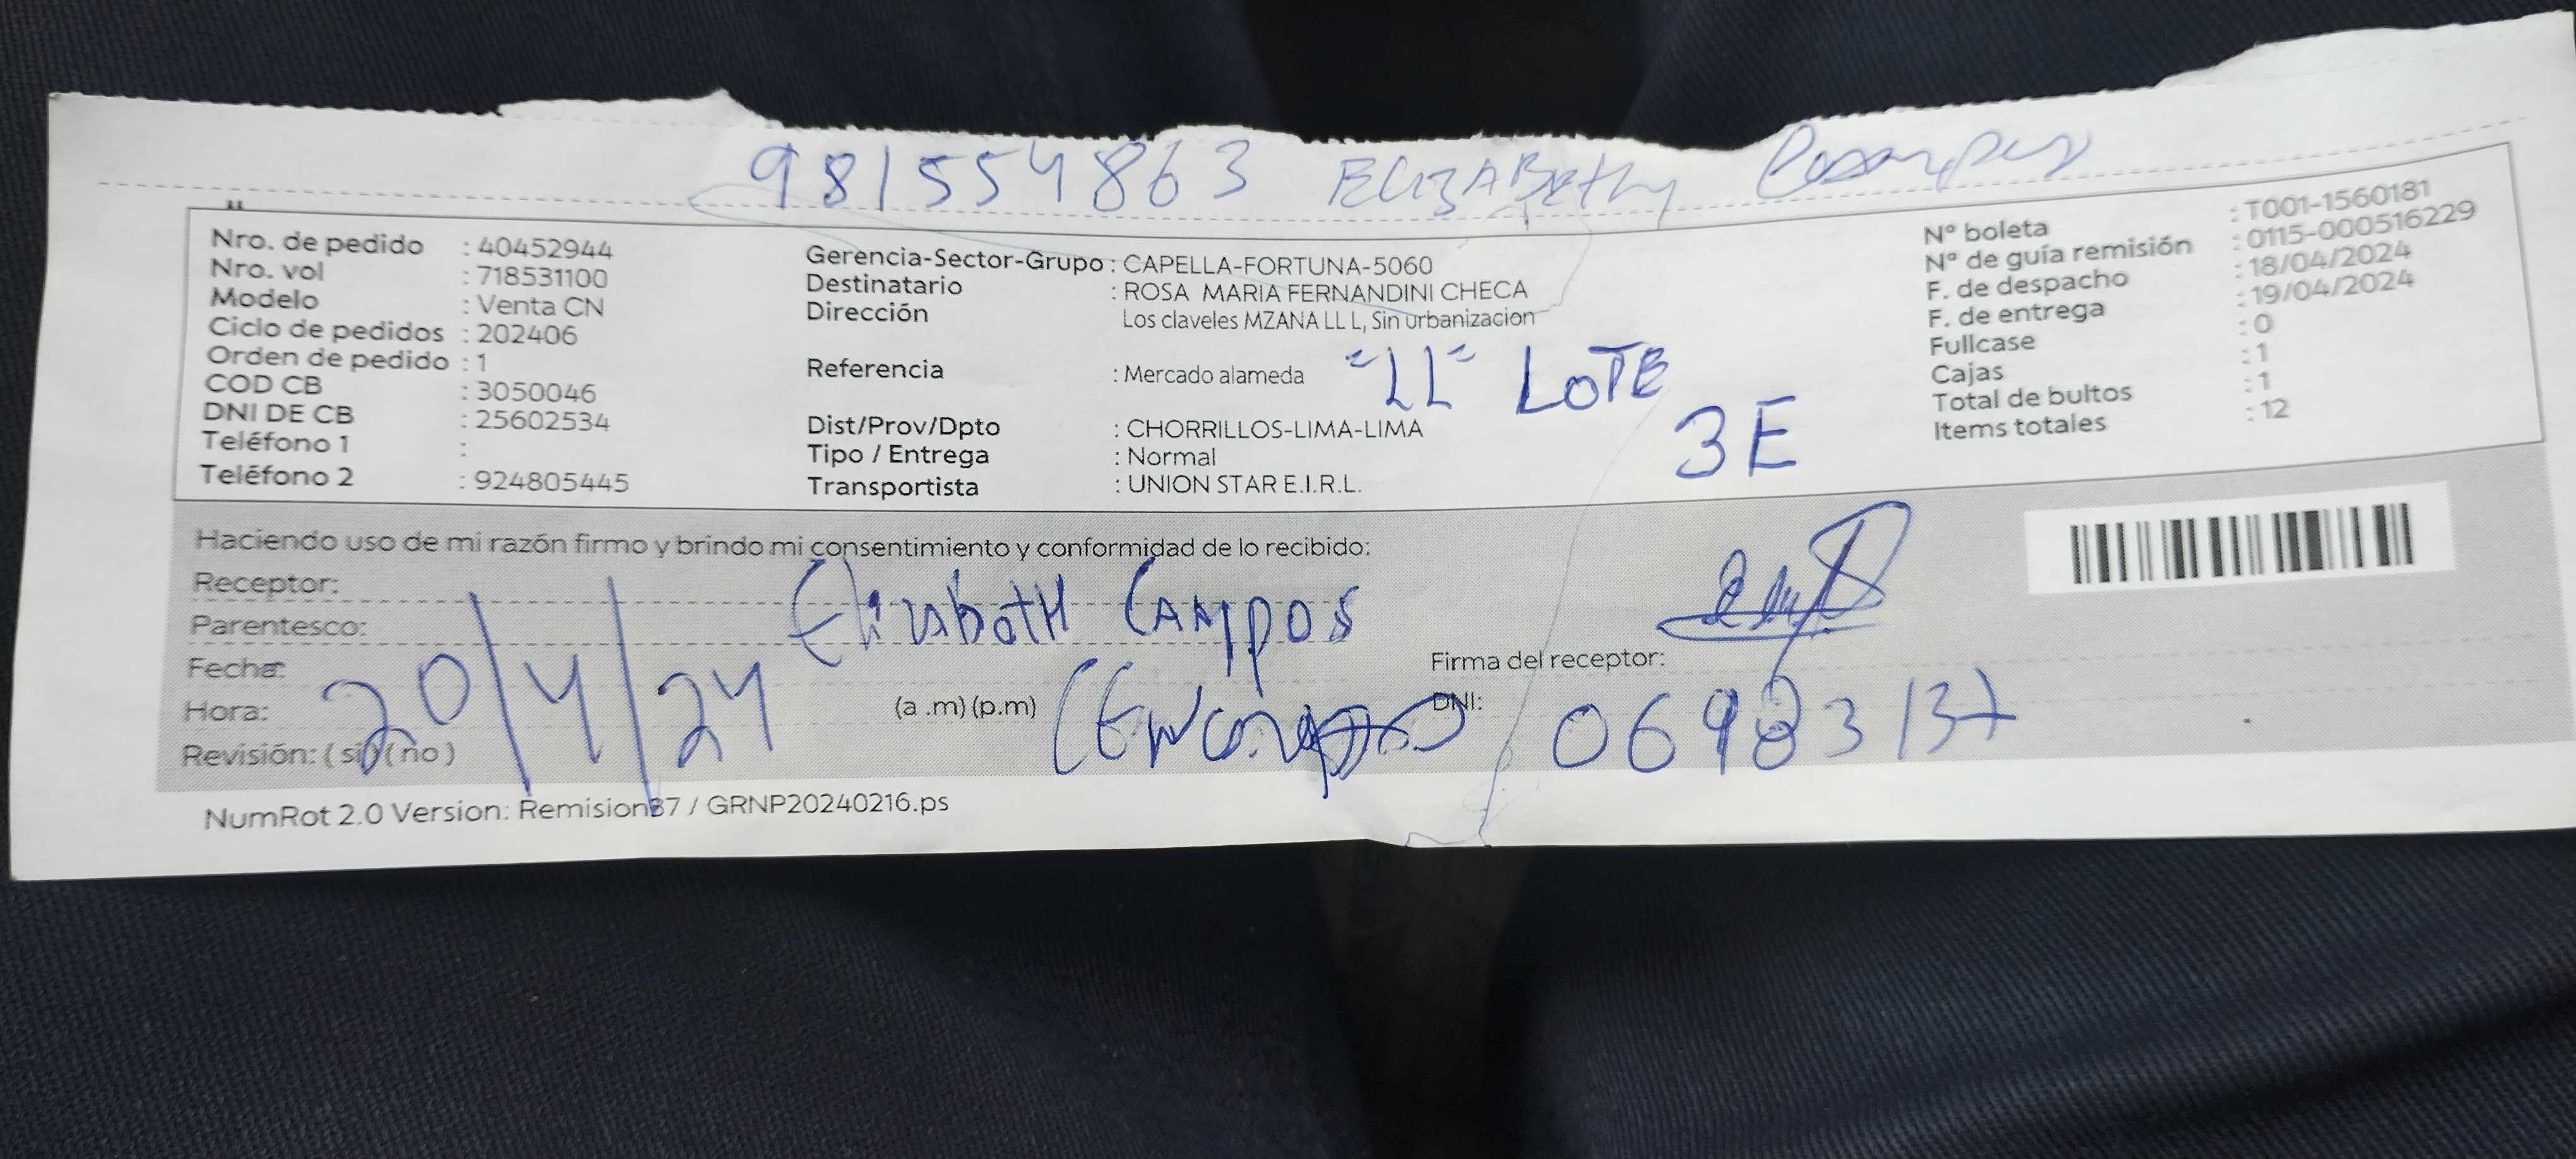 981554863 ELIZABETH
Nro. de pedido : 40452944
Nro. vol : 718531100
Modelo : Venta CN
Ciclo de pedidos : 202406
Orden de pedido : 1
COD CB : 3050046
DNI DE CB : 25602534
Teléfono 1 :
Teléfono 2 : 924805445
Gerencia-Sector-Grupo : CAPELLA-FORTUNA-5060
Destinatario : ROSA MARIA FERNANDINI CHECA
Dirección Los claveles MZANA LL L, Sin urbanizacion
Referencia : Mercado alameda
"LL" LOTE
3E
Dist/Prov/Dpto : CHORRILLOS-LIMA-LIMA
Tipo / Entrega : Normal
Transportista : UNION STAR E.I.R.L.
N° boleta : T001-1560181
N° de guía remisión : 0115-000516229
F. de despacho : 18/04/2024
F. de entrega : 19/04/2024
Fullcase : 0
Cajas : 1
Total de bultos : 1
Items totales : 12
Haciendo uso de mi razón firmo y brindo mi consentimiento y conformidad de lo recibido:
Receptor:
Elizabeth CAMPOS
Parentesco:
Fecha: 20/4/24
Hora: (a .m) (p.m)
Revisión: ( si ) ( no )
Firma del receptor:
DNI: 06983137
NumRot 2.0 Version: Remision37 / GRNP20240216.ps